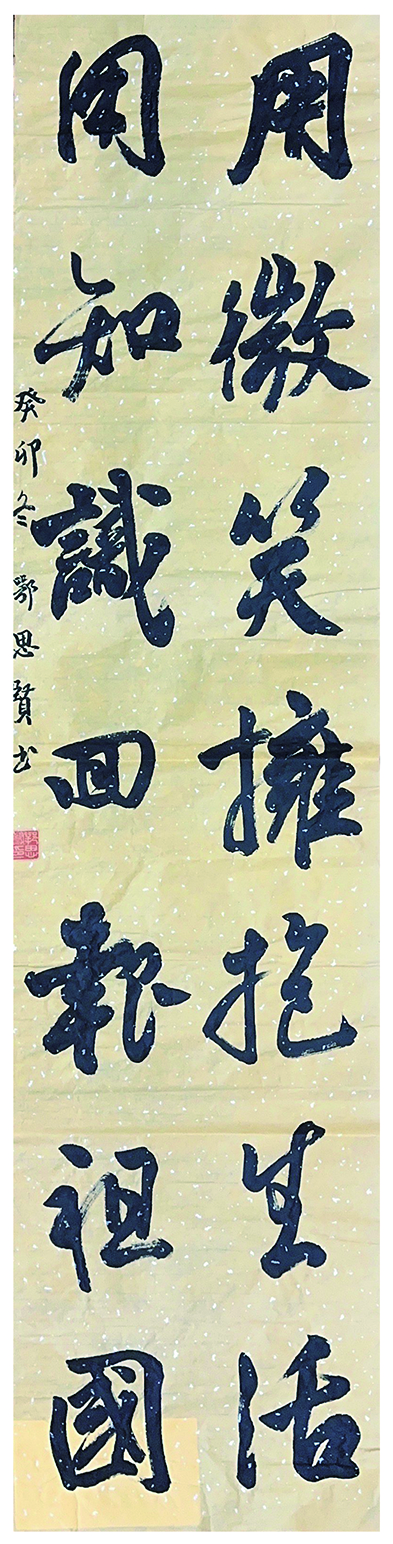 用微笑擁抱生活
用知識回報祖國
癸卯冬鄂思賢书